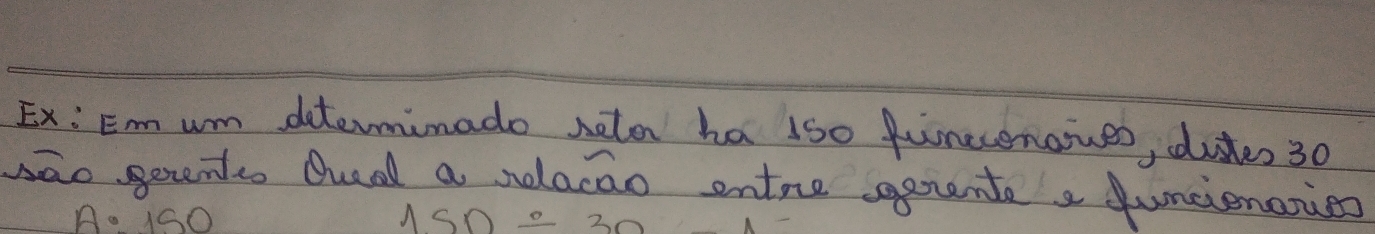 Ex: Em um determinado setor ha 150 funcionarios, destes 30
são gerentes Qual a relacão entre gerente e funcionarios
A: 150 150 ÷ 30